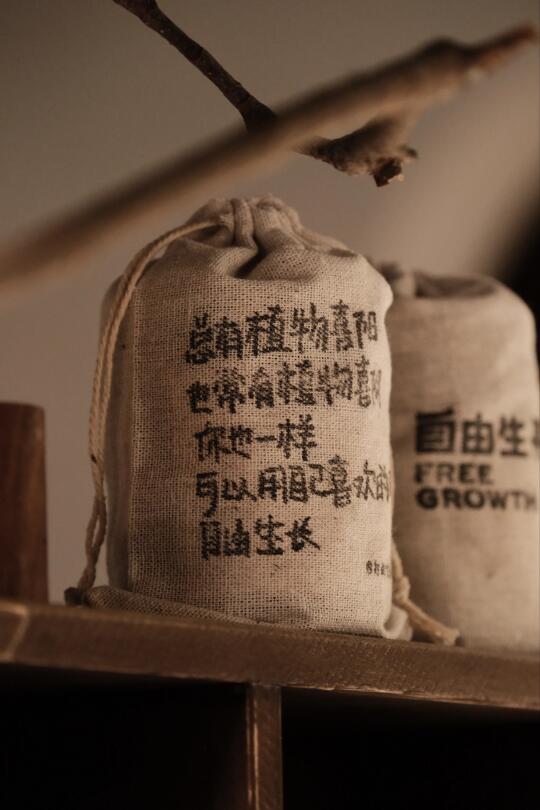 总有植物喜阳
也常有植物喜
你也一样
可以用自己喜欢的
自由生长
自由生
FREE
GROWTH